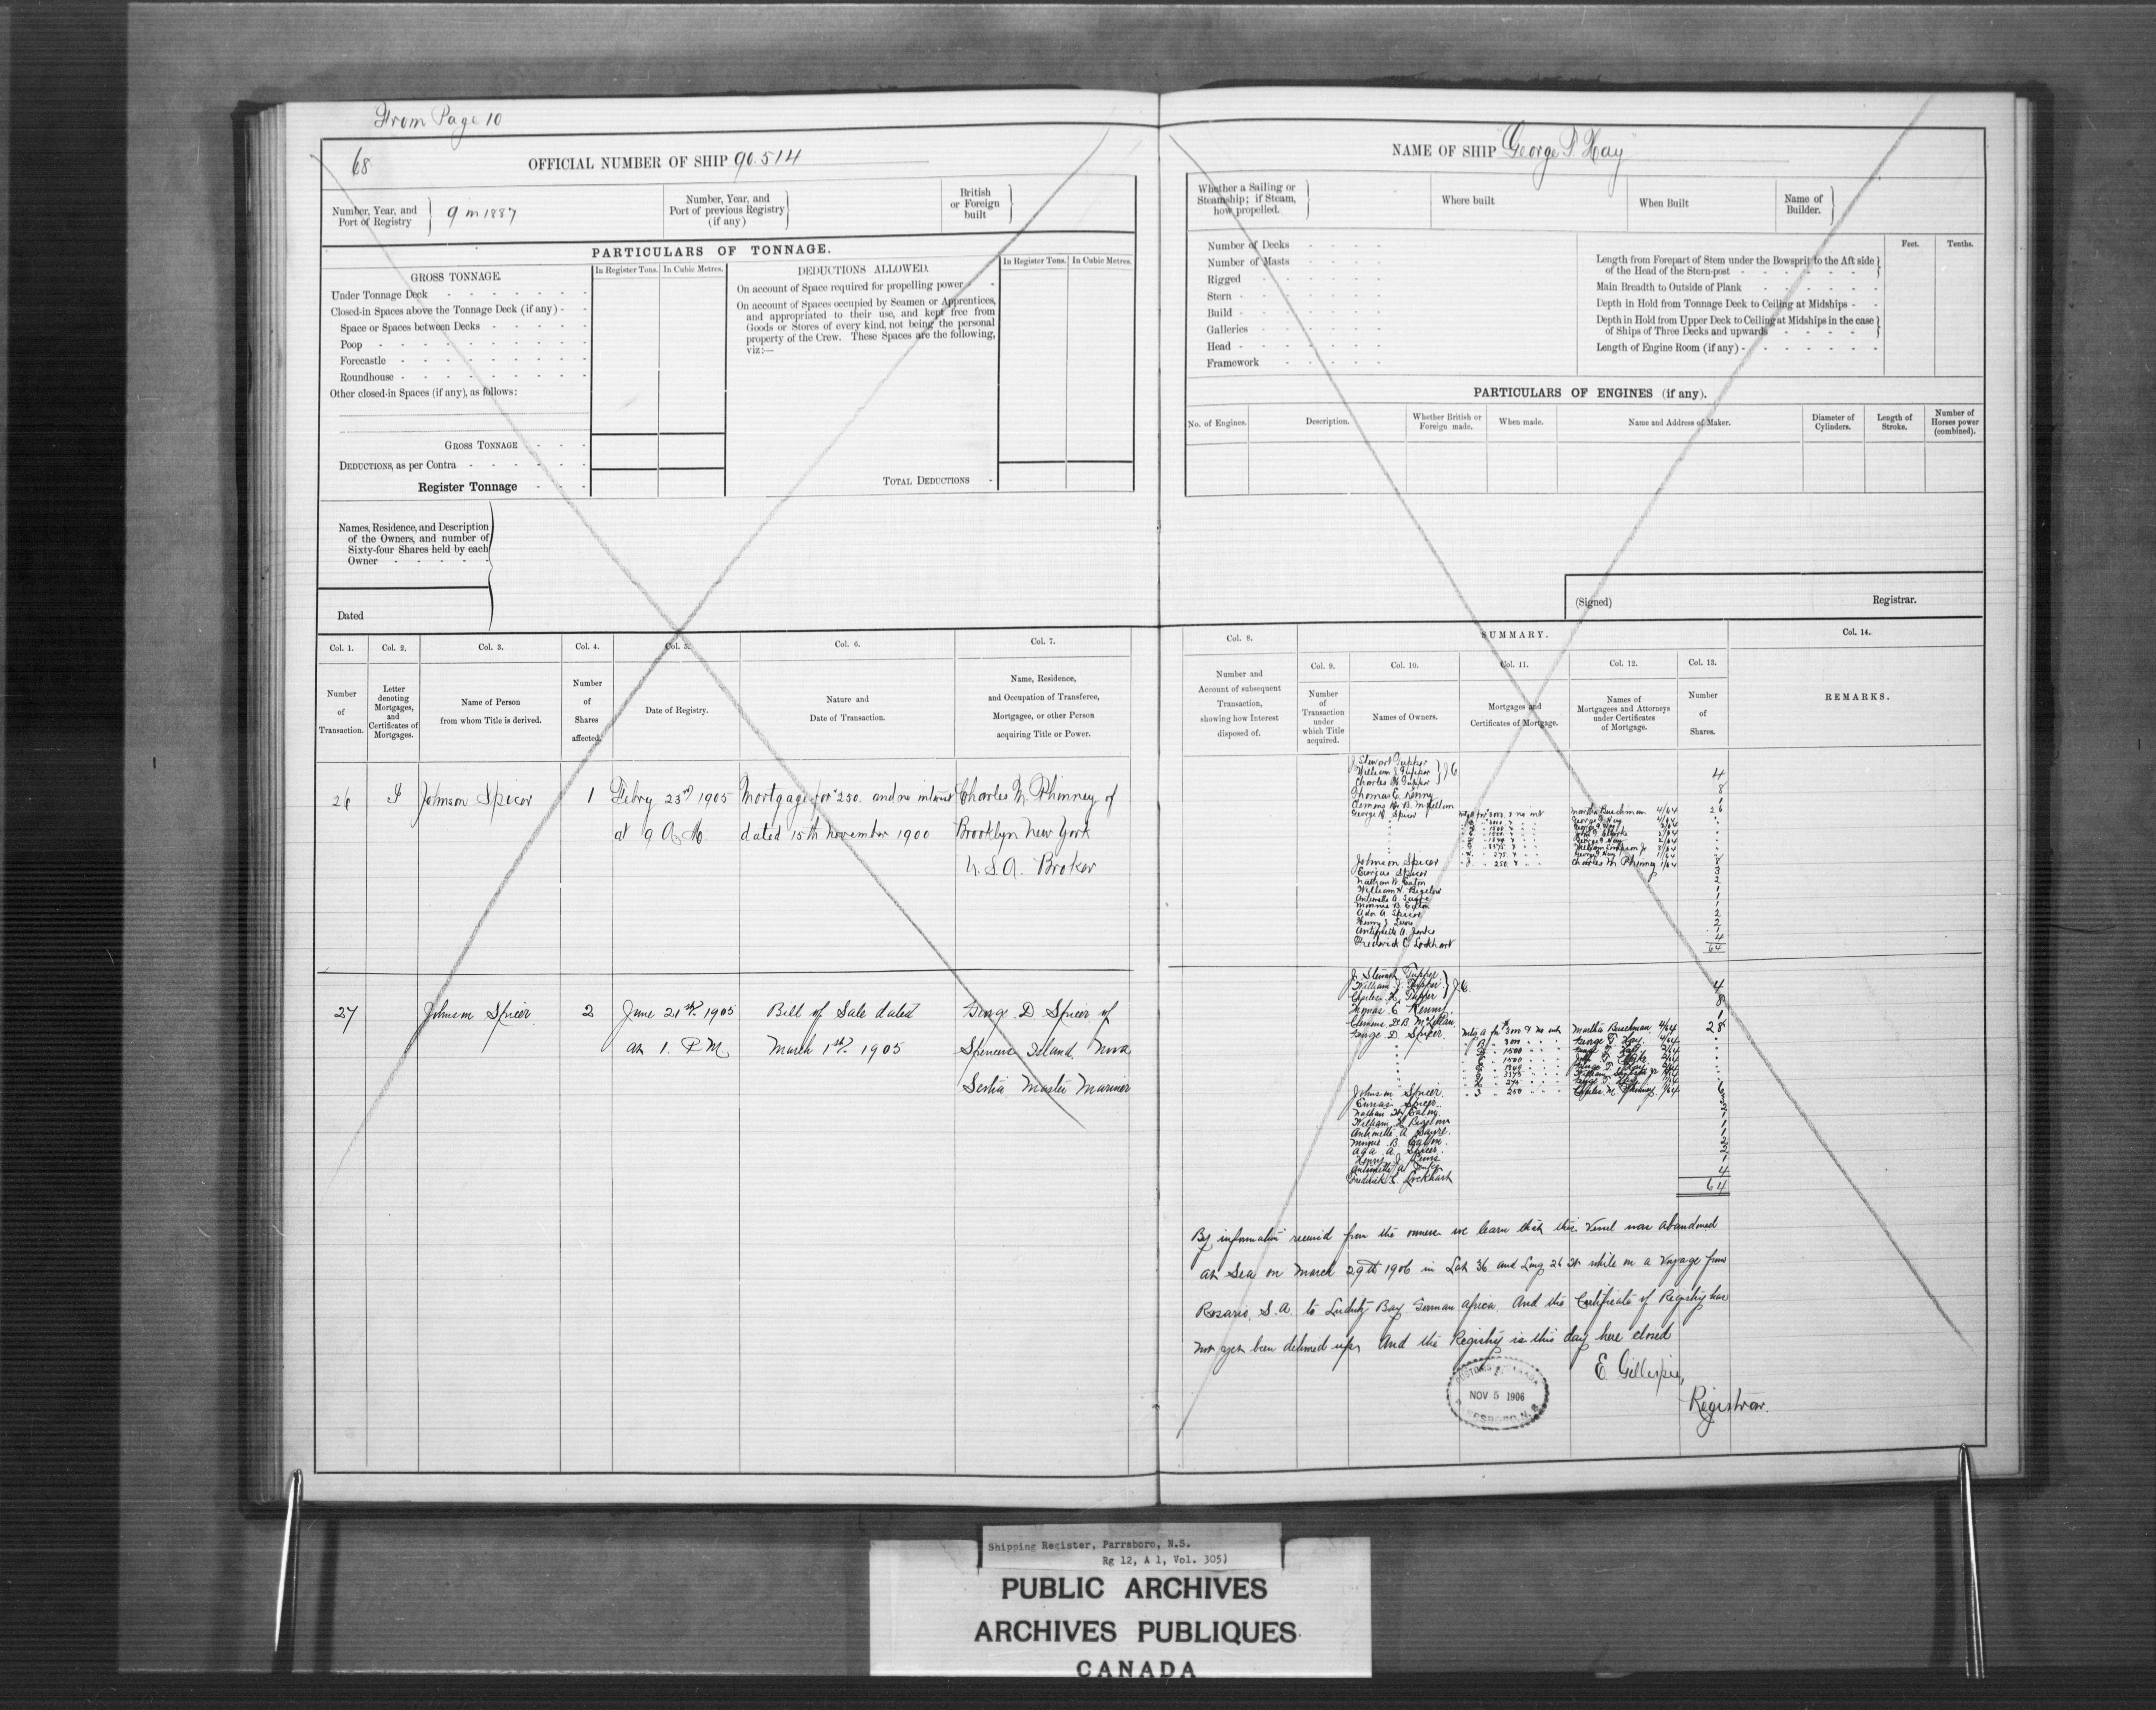 From Page 10
68
OFFICIAL NUMBER OF SHIP 90.514
Number, Year, and
Port of Registry
9 in 1887
Number, Year, and
Port of previous Registry
(if any)
British
or Foreign
built
PARTICULARS OF TONNAGE.
GROSS TONNAGE.
In Register Tons. In Cubic Metres.
Under Tonnage Deck
Closed-in Spaces above the Tonnage Deck (if any)
Space or Spaces between Decks
Poop
Forecastle
Roundhouse
Other closed-in Spaces (if any), as follows:
GROSS TONNAGE
DEDUCTIONS, as per Contra
Register Tonnage
DEDUCTIONS ALLOWED.
In Register Tons. In Cubic Metres.
On account of Space required for propelling power
On account of Spaces occupied by Seamen or Apprentices,
and appropriated to their use, and kept free from
Goods or Stores of every kind, not being the personal
property of the Crew. These Spaces are the following,
viz:—
TOTAL DEDUCTIONS
Names, Residence, and Description
of the Owners, and number of
Sixty-four Shares held by each
Owner
Dated
Col. 1.
Number
of
Transaction.
Col. 2.
Letter
denoting
Mortgages,
and
Certificates of
Mortgages.
Col. 3.
Name of Person
from whom Title is derived.
Col. 4.
Number
of
Shares
affected.
Col. 5.
Date of Registry.
Col. 6.
Nature and
Date of Transaction.
Col. 7.
Name, Residence,
and Occupation of Transferee,
Mortgagee, or other Person
acquiring Title or Power.
26 Johnson Spicer 1 Febry 23rd 1905 Mortgage for $250. and no interest Charles M. Phinney of
at 9 A.M. dated 15th November 1900 Brooklyn New York
U.S.A. Broker
27 Johnson Spicer 2 June 21st 1905 Bill of Sale dated George D Spicer of
at 1. P.M. March 1st 1905 Spencers Island, Nova
Scotia Master Mariner
NAME OF SHIP "George T. Hay"
Whether a Sailing or
Steamship; if Steam,
how propelled.
Where built
When Built
Name of
Builder.
Number of Decks
Number of Masts
Rigged
Stern
Build
Galleries
Head
Framework
Feet. Tenths.
Length from Forepart of Stem under the Bowsprit to the Aft side
of the Head of the Stern-post
Main Breadth to Outside of Plank
Depth in Hold from Tonnage Deck to Ceiling at Midships
Depth in Hold from Upper Deck to Ceiling at Midships in the case
of Ships of Three Decks and upwards
Length of Engine Room (if any)
PARTICULARS OF ENGINES (if any).
No. of Engines.
Description.
Whether British or
Foreign made.
When made.
Name and Address of Maker.
Diameter of
Cylinders.
Length of
Stroke.
Number of
Horses power
(combined).
(Signed) Registrar.
Col. 8.
Number and
Account of subsequent
Transaction,
showing how Interest
disposed of.
SUMMARY.
Col. 9.
Number
of
Transaction
under
which Title
acquired.
Col. 10.
Names of Owners.
Col. 11.
Mortgages and
Certificates of Mortgage.
Col. 12.
Names of
Mortgagees and Attorneys
under Certificates
of Mortgage.
Col. 13.
Number
of
Shares.
Col. 14.
REMARKS.
J Stewart Tupper
William J Tupper
Charles H Tupper 4
Thomas E. Kenny 8
George D. Spicer Martha Buchman 4/64 26
Johnson Spicer 250 Charles M. Phinney 1/64
Nathan W. Eaton
William H. Bigelow
Minnie B. Eaton
Ada A. Spicer
Frederick C. Lockhart 4
64
J. Stewart Tupper
William J. Tupper
Charles H. Tupper 4
Thomas E. Kenny 8
George D. Spicer Martha Buchman 4/64 28
Johnson Spicer 250 Charles M. Phinney 1/64
Nathan W. Eaton
William H. Bigelow
Minnie B. Eaton
Ada A. Spicer
Frederick C. Lockhart 4
64
By information received from the owners we learn that this Vessel was abandoned
at Sea on March 29th 1906 in Lat 36 and Long 26 W while on a Voyage from
Rosario, S.A. to Luderitz Bay German Africa. And the Certificate of Registry has
not yet been delivered up, And the Registry is this day here closed
E. Gillespie,
Registrar.
CUSTOMS CANADA
NOV 5 1906
PARRSBORO, N.S.
Shipping Register, Parrsboro, N.S.
Rg 12, A 1, Vol. 305)
PUBLIC ARCHIVES
ARCHIVES PUBLIQUES
CANADA